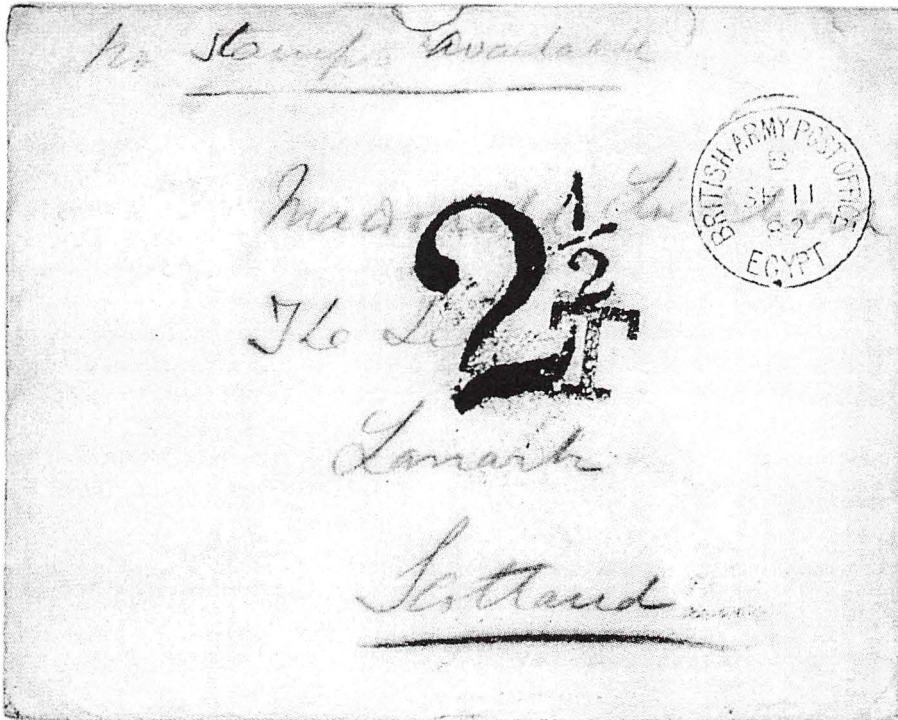 No Stamps available
BRITISH ARMY POST OFFICE
B
SP 11
82
EGYPT
2 1/2
T
The
Lanark
Scotland